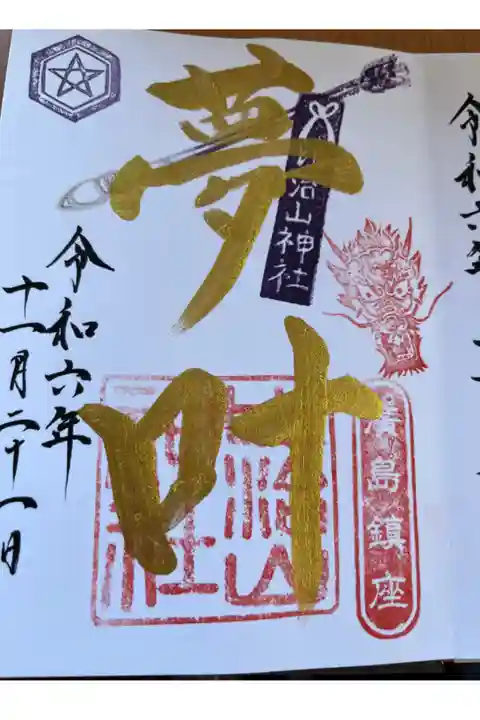 夢叶
比治山神社
廣島鎮座
令和六年
十一月二十一日
令和六年